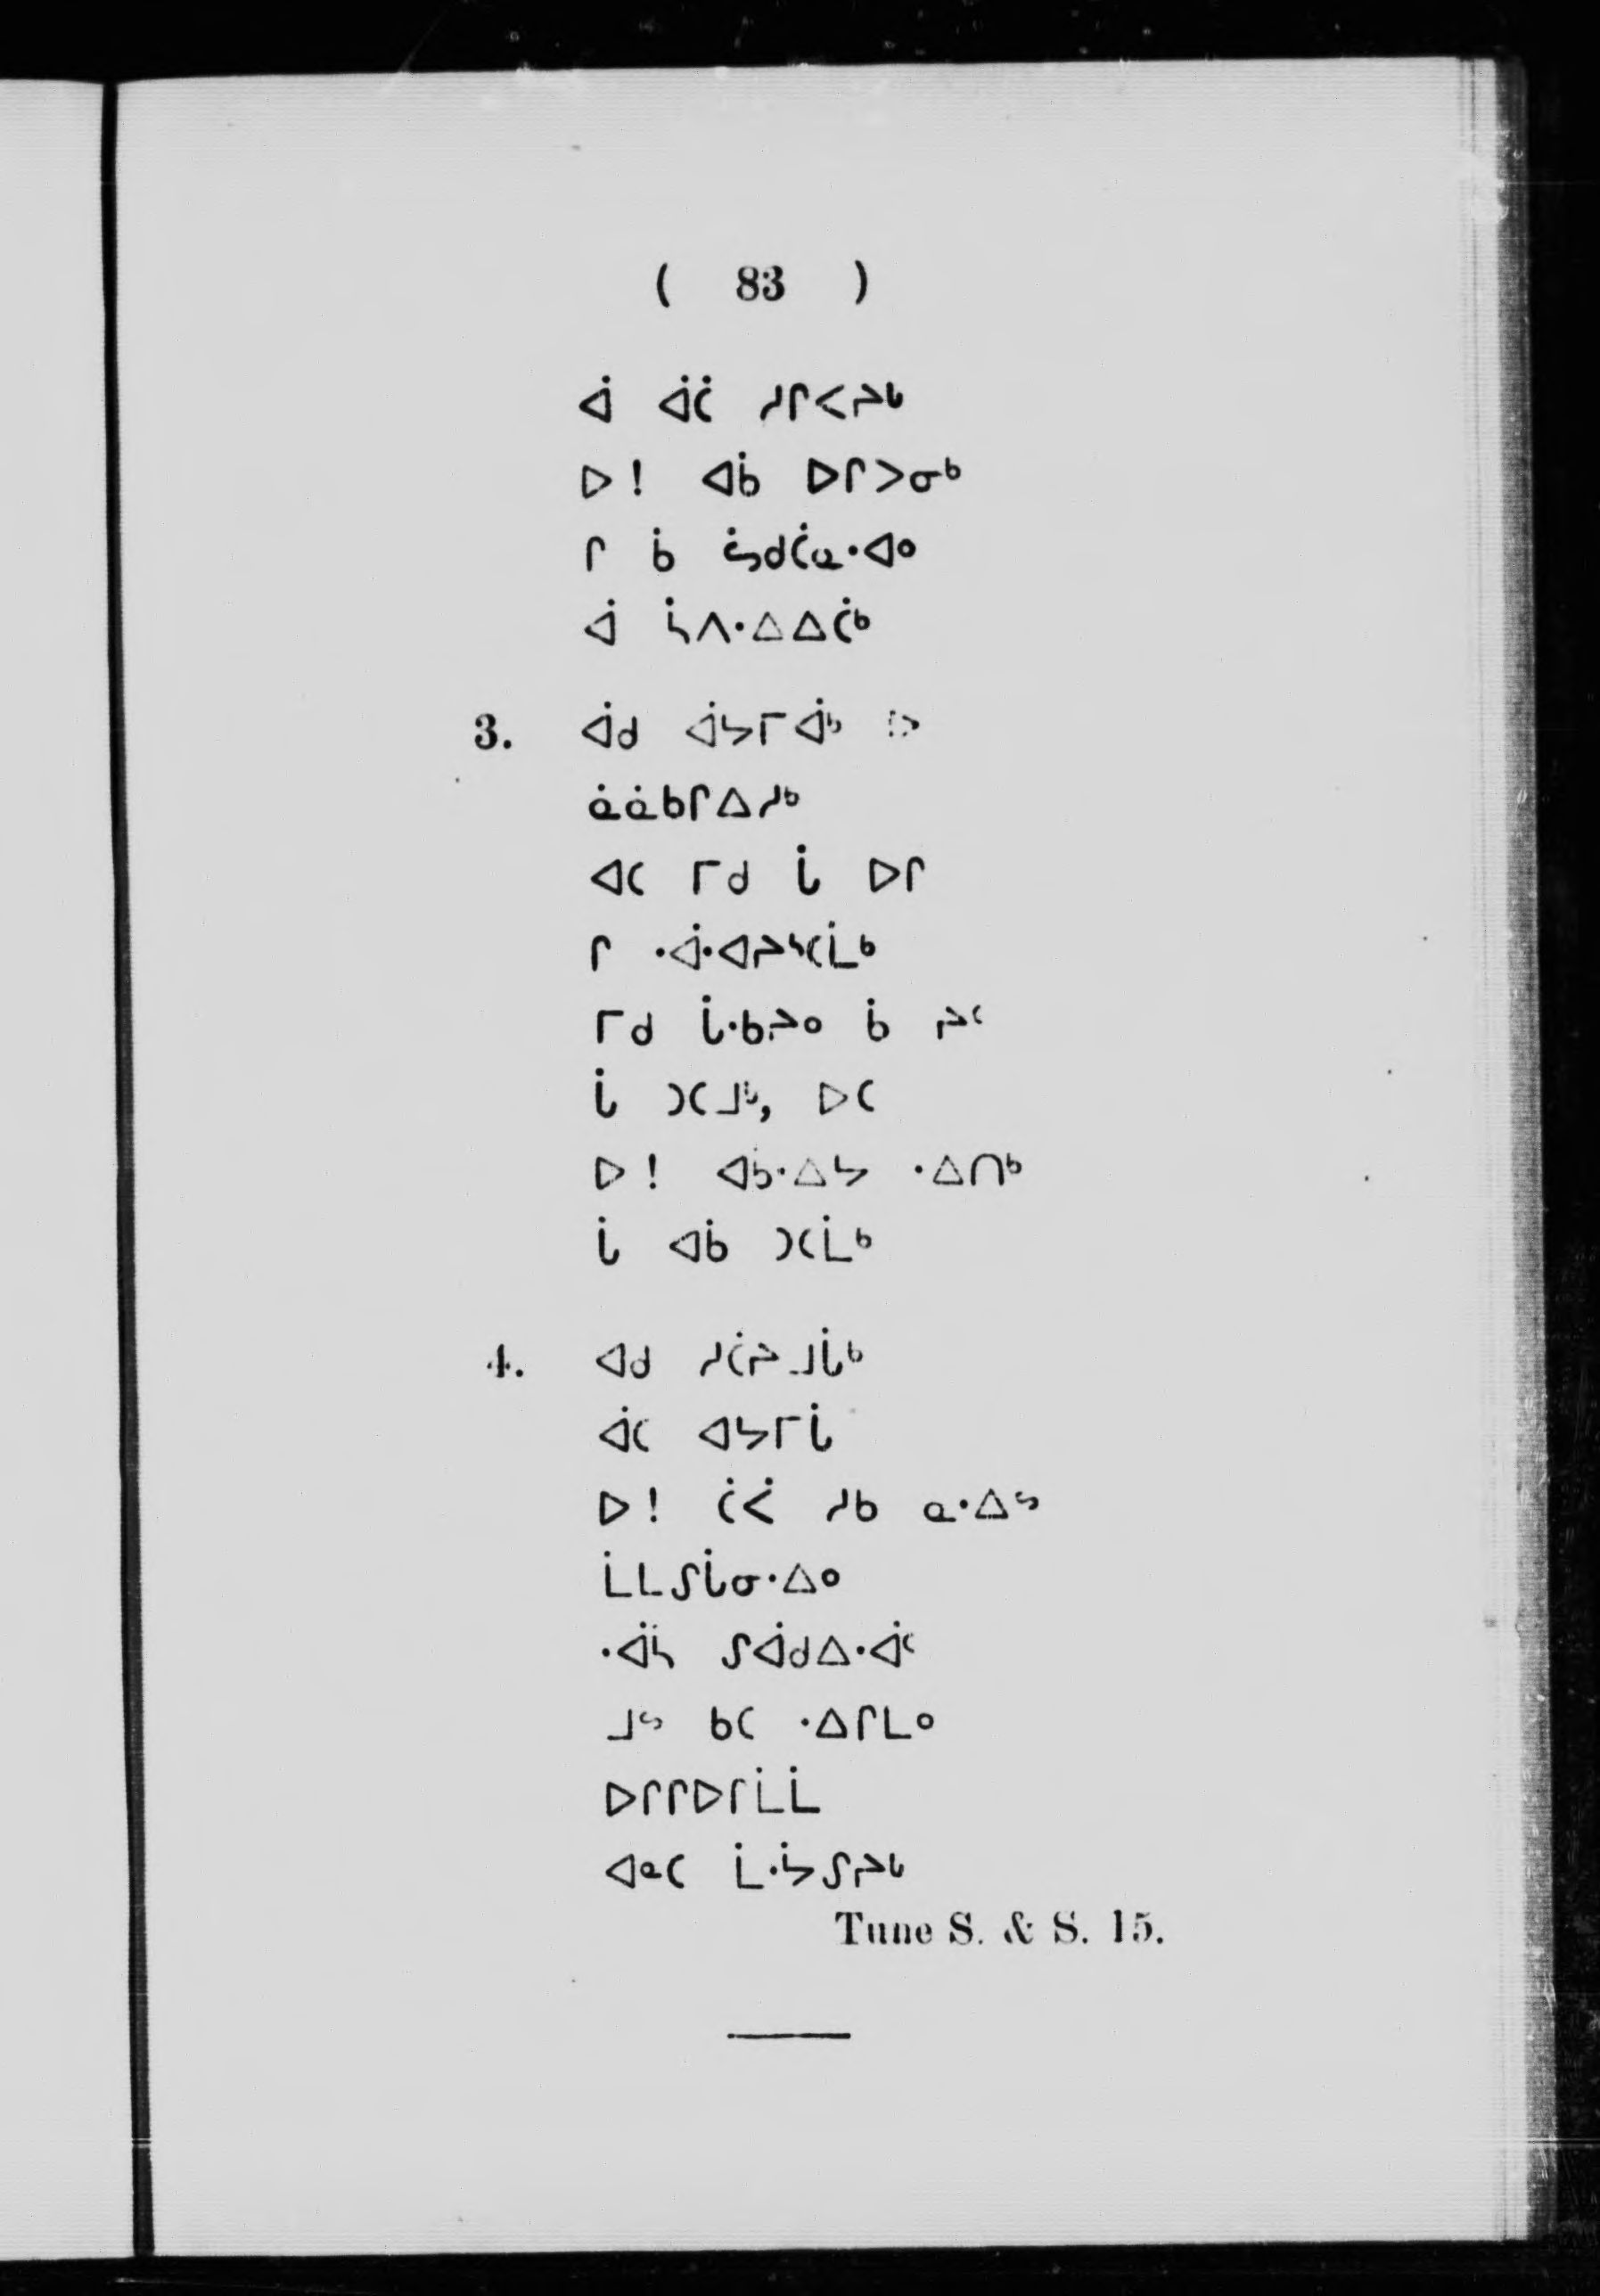 ( 83 )
ᐋ ᐋᑖ ᓱᒋᐸᔨᒡ
ᐅ! ᐊᑳ ᐅᒋᐳᓂᒃ
ᒋ ᑳ ᓵᑯᑖᓇᐧᐊᐤ
ᐋ ᓭᐱᐧᐃᐃᑖᒃ
3. ᐋᑯ ᐋᔭᒥᐋᒃ
ᓈᓈᑲᒋᐃᓱᒃ
ᐊᑕ ᒥᑯ ᒑ ᐅᒋ
ᒋ ᐧᐋᐧᐊᔨᔅᑕᒫᒃ
ᒥᑯ ᒑᐧᑲᔨᐤ ᑳ ᔨᑦ
ᒑ ᑐᑕᒧᒡ, ᐅᑕ
ᐅ! ᐊᑳᐧᐃᔭ ᐧᐃᑎᒃ
ᒑ ᐊᑳ ᑐᑕᒫᒃ
4. ᐊᑯ ᓱᑖᔨᒧᒑᒃ
ᐋᑕ ᐊᔭᒥᒑ
ᐅ! ᑖᐹ ᓱᑲ ᓇᐧᐃᔥ
ᒫᒪᔑᒑᓂᐧᐃᐤ
ᐧᐋᓴ ᔑᐋᑯᐃᐧᐋᑦ
ᒧᔥ ᑲᑕ ᐧᐃᒋᒪᐤ
ᐅᒋᒋᐅᒋᒫᒫ
ᐊᓐᑕ ᒫᐧᔮᔑᔨᒡ
Tune S. & S. 15.